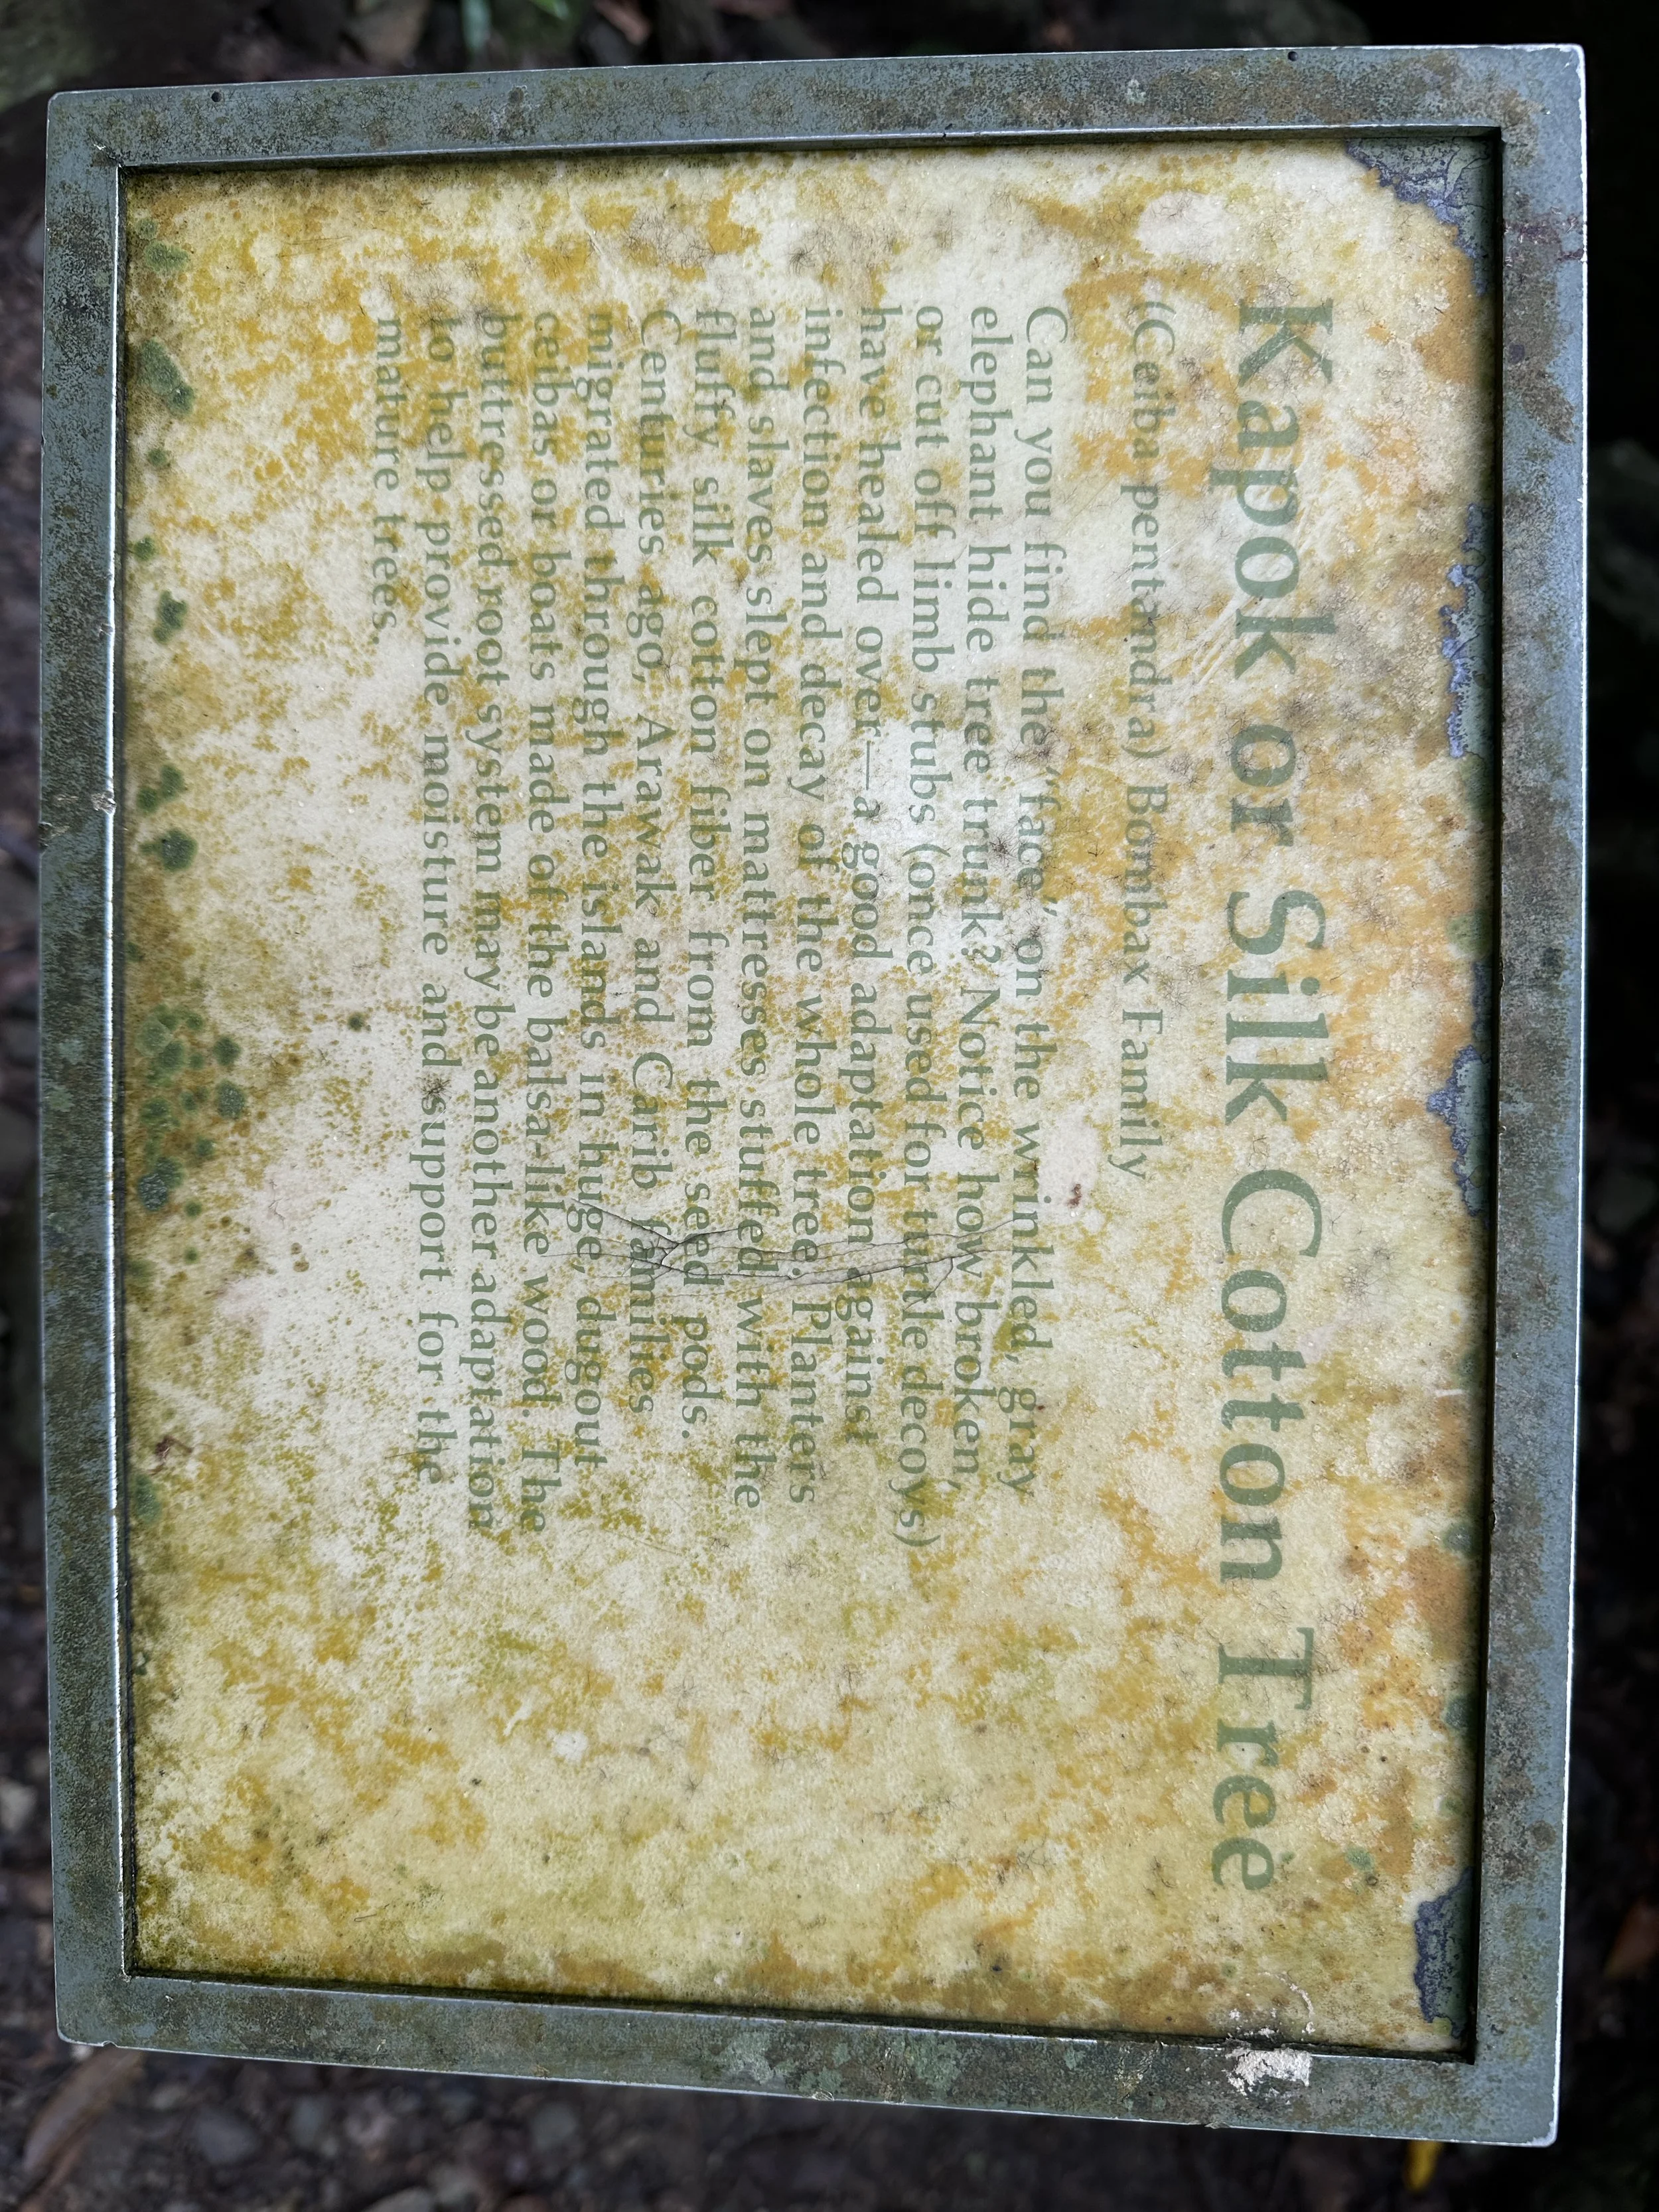 Kapok or Silk Cotton Tree
(Ceiba pentandra) Bombax Family
Can you find the "face" on the wrinkled, gray
elephant hide tree trunk? Notice how broken,
or cut off limb stubs (once used for turtle decoys)
have healed over—a good adaptation against
infection and decay of the whole tree. Planters
and slaves slept on mattresses stuffed with the
fluffy silk cotton fiber from the seed pods.
Centuries ago, Arawak and Carib families
migrated through the islands in huge, dugout
ceibas or boats made of the balsa-like wood. The
buttressed root system may be another adaptation
to help provide moisture and support for the
mature trees.